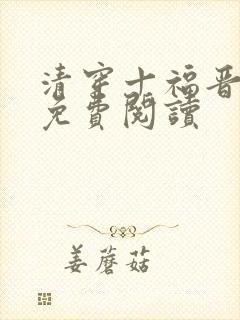 清穿十福晋
免費閱讀
姜蘑菇